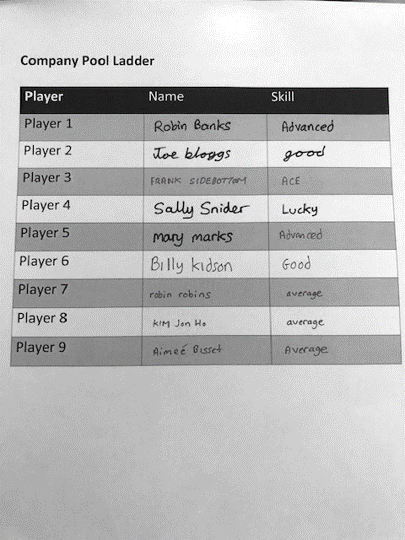 Company Pool Ladder
Player Name Skill
Player 1 Robin Banks Advanced
Player 2 Joe bloggs good
Player 3 FRANK SIDEBOTTOM ACE
Player 4 Sally Snider Lucky
Player 5 mary marks Advanced
Player 6 Billy kidson Good
Player 7 robin robins average
Player 8 KIM Jon Ho average
Player 9 Aimeé Bisset Average